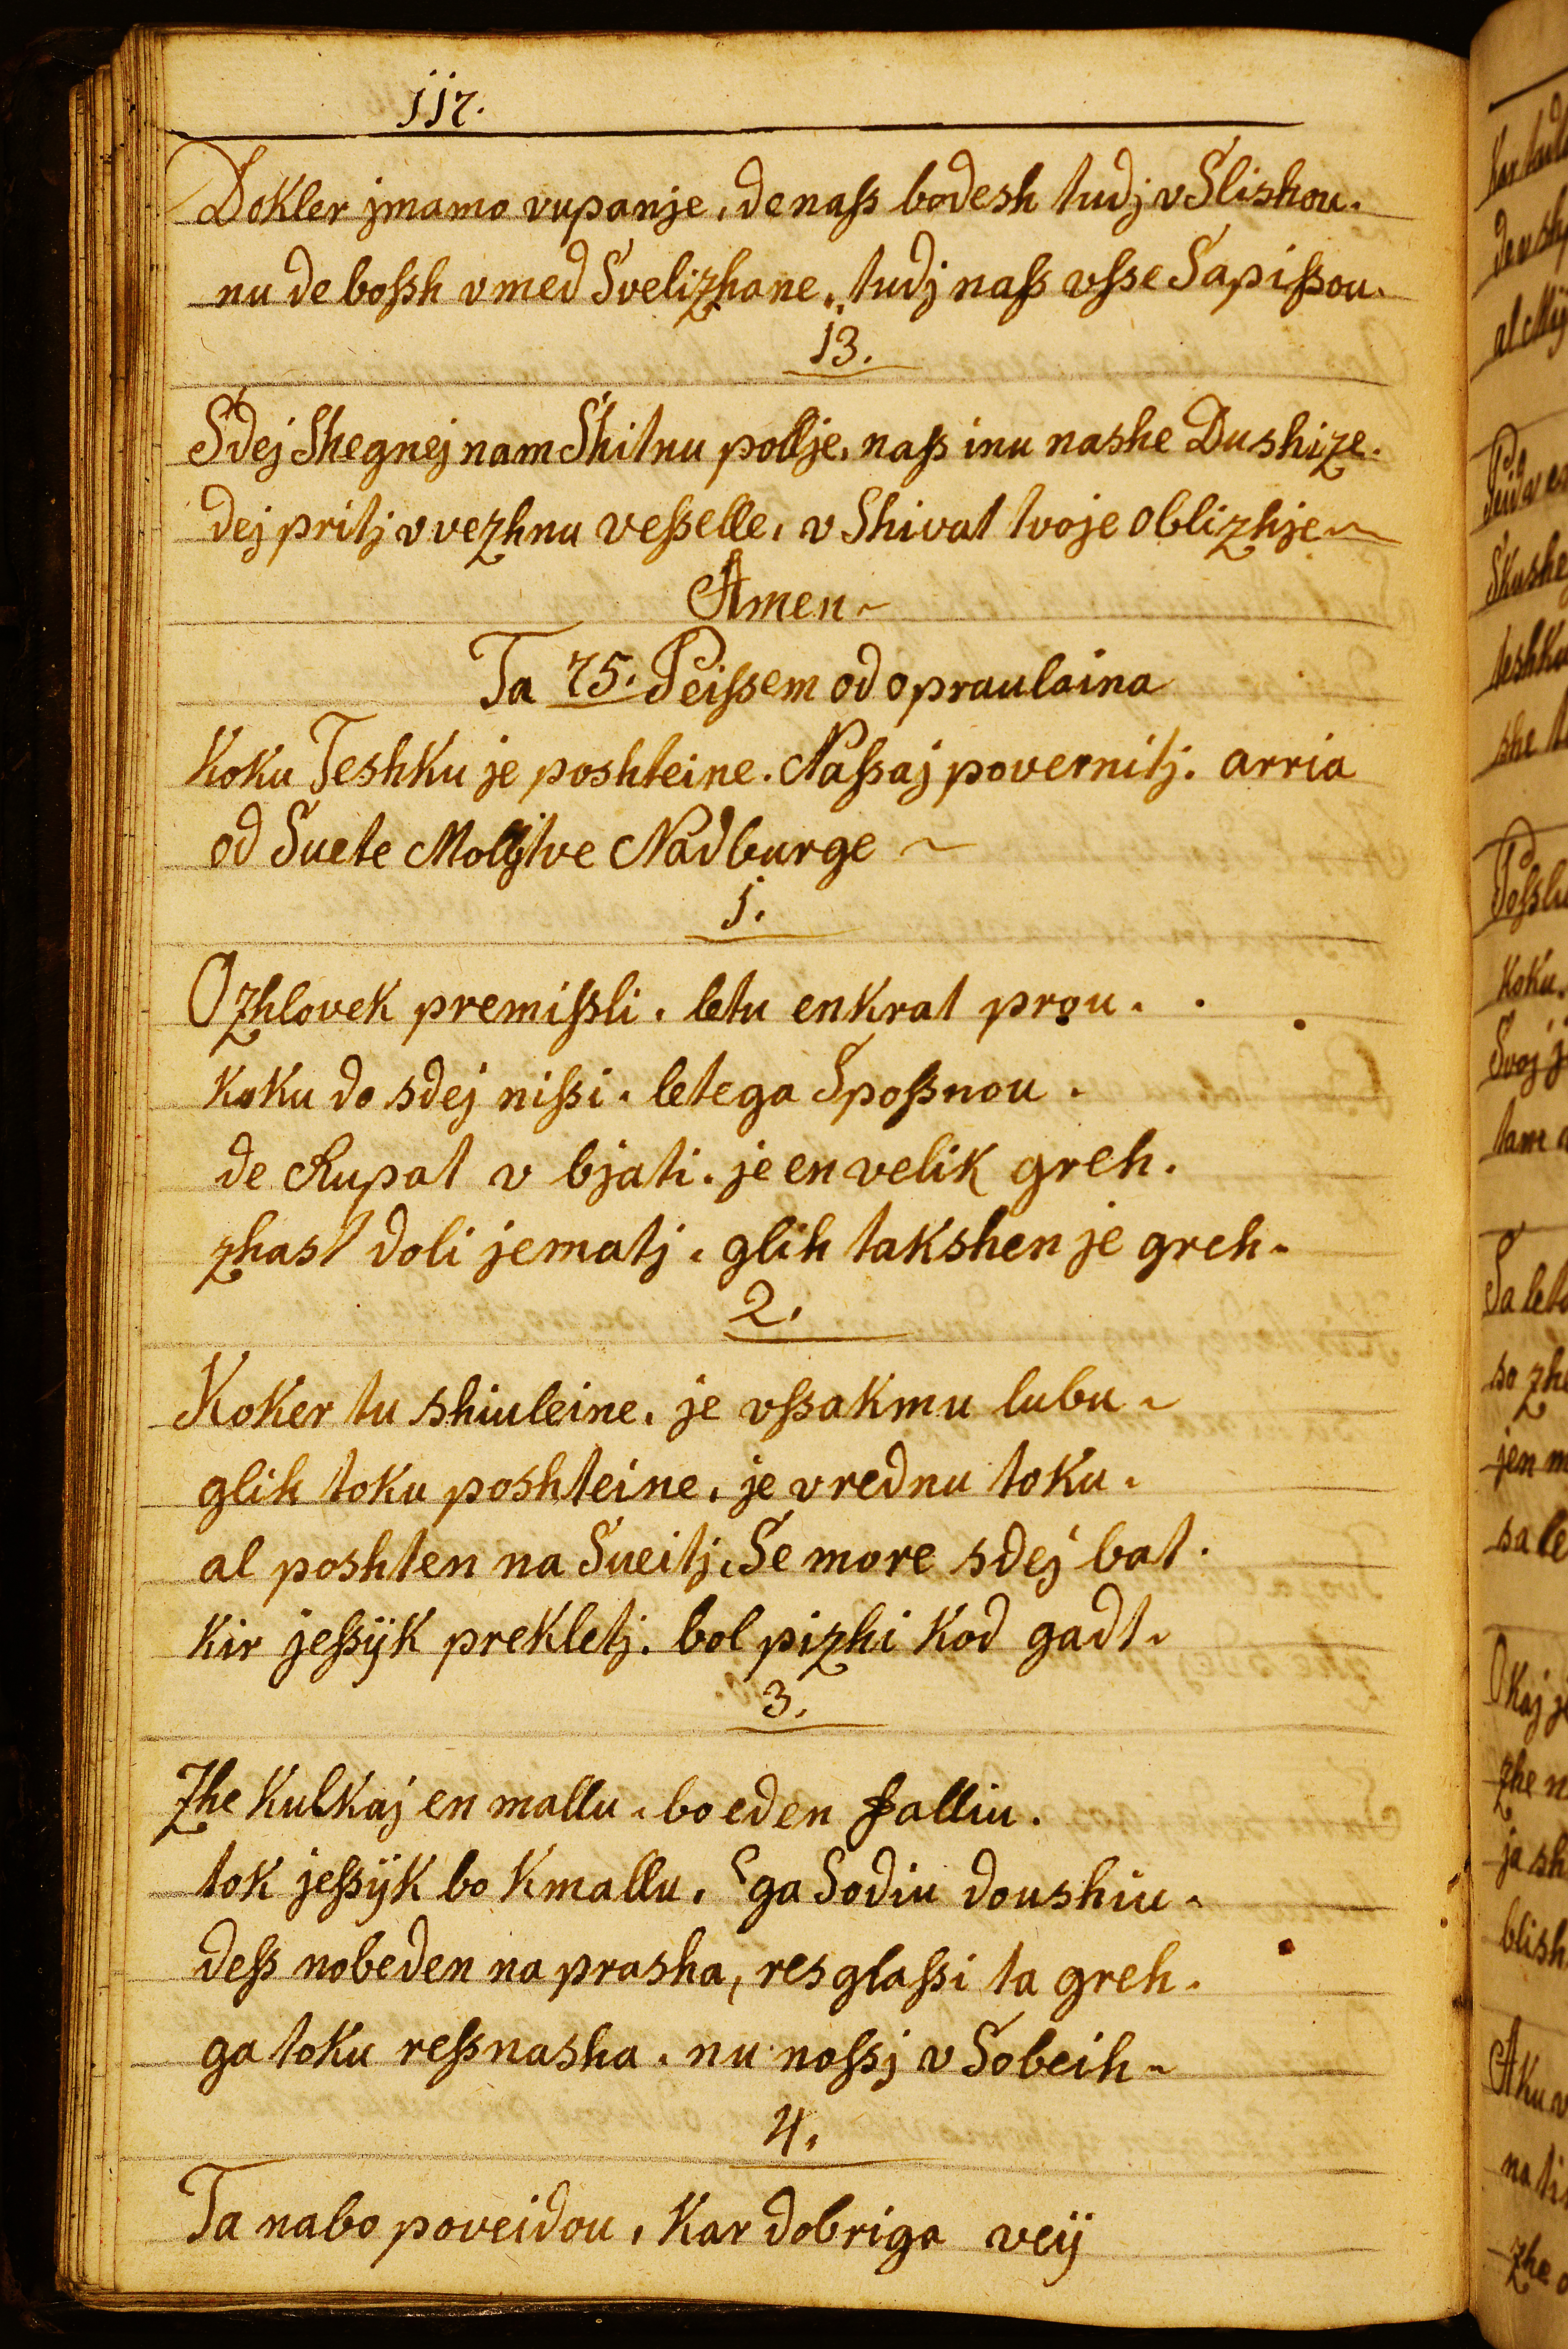 117.
Dokler jmamo vupanje, de naß bodesh tudj v Slishou.
nu de boßh vmed Svelizhane, tudj naß vsse Sapißou.
13.
Sdej Shegnej nam Shitnu pollje, naß inu nashe Dushize.
dej pritj v vezhnu veßelle, v Shivat tvoje oblizhje ~
Amen ~
Ta 75. Peißem od opraulaina
Koku Teshku je poshteine. Naßaj povernitj. arria
od Suete Molijtve Nadburge ~
1.
O zhlovek premißli. letu enkrat prou.
Koku do sdej nißi. letega Spoßnou.
de Rupat v bjati. je en velik greh.
zhast doli jematj. glih takshen je greh.
2.
Koker tu shiuleine. je vßakmu lubu ~
glih toku poshteine. je vrednu toku.
al poshten na Sueitj. Se more sdej bat.
kir jeßijk prekletj. bol pizhi kod gadt.
3.
Zhe kulkaj en mallu. bo eden falliu.
tok jeßijk bo kmallu. Sga Sodiu doushiu.
deß nobeden na prasha, resglaßi ta greh.
ga toku reßnasha. nu noßj v Sobeih ~
4.
Ta nabo poveidou, kar dobriga veij